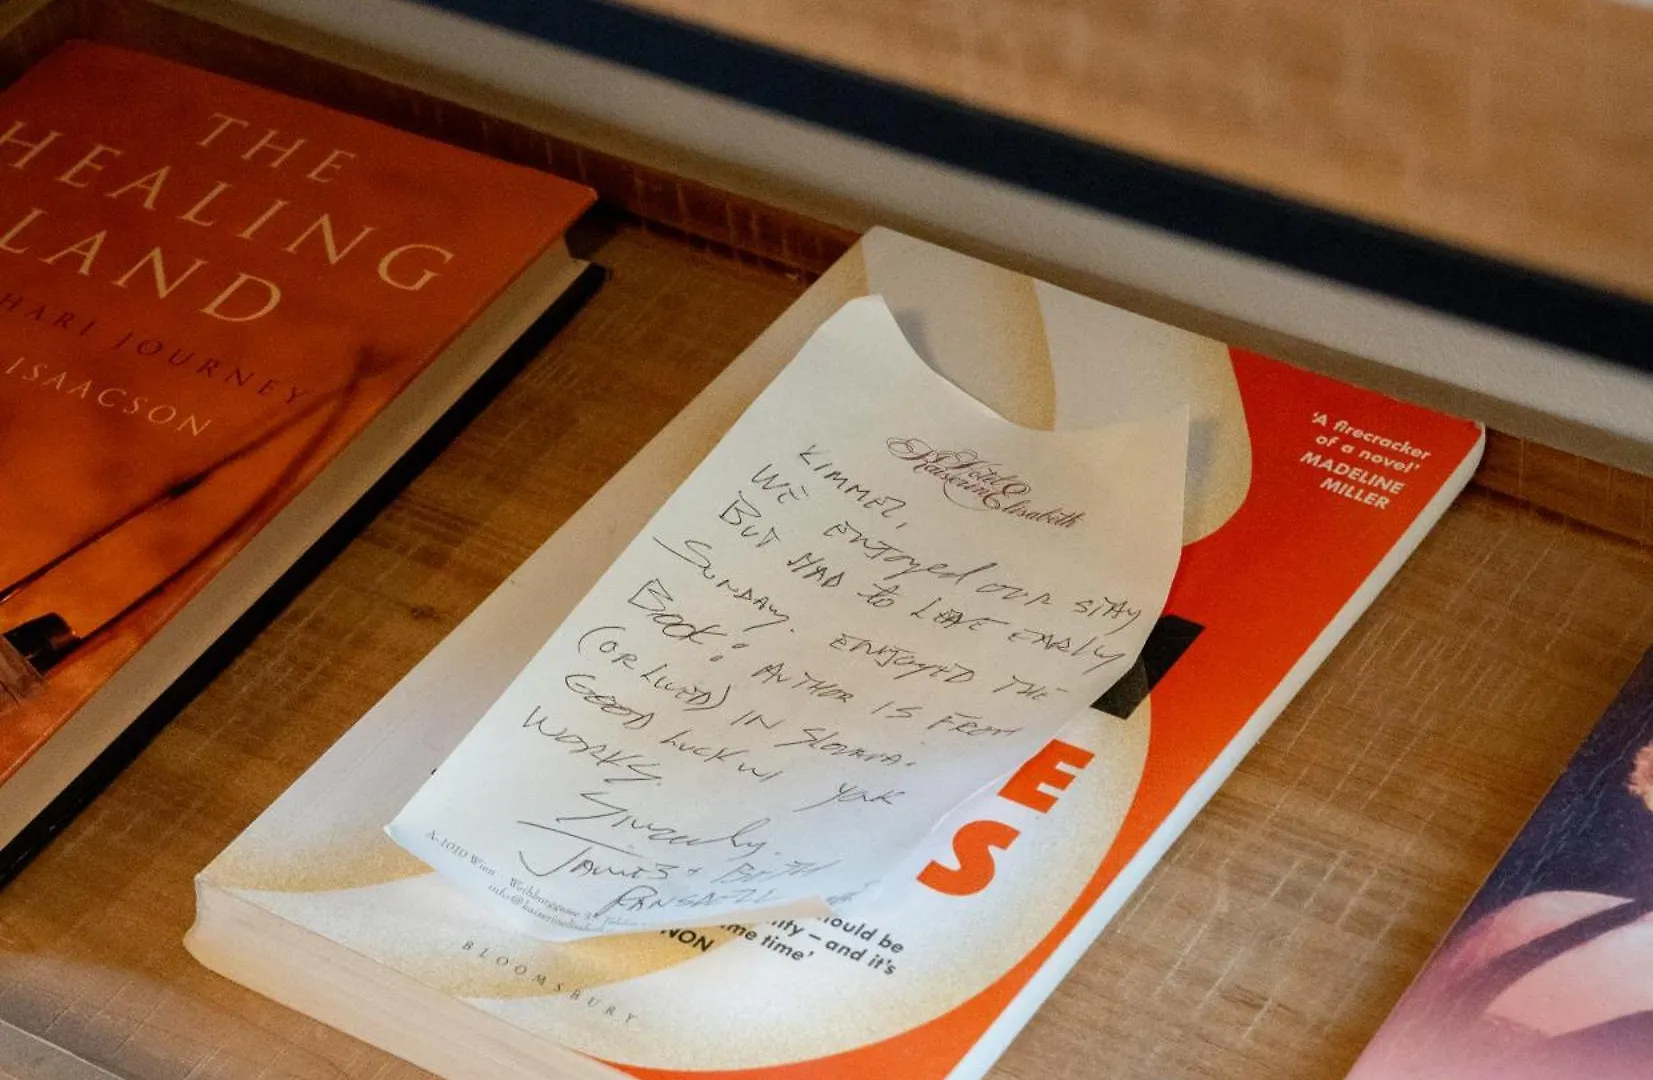 THE
HEALING
LAND
HARI JOURNEY
ISAACSON
'A firecracker
of a novel'
MADELINE
MILLER
Hotel
Kaiserin Elisabeth
KIMMEL,
WE ENJOYED OUR STAY
BUT HAD to LEAVE EARLY
SUNDAY. ENJOYED THE
BOOK! AUTHOR IS FROM
(OR LIVED) IN
GOOD LUCK W/ YOUR
WORKS.
Sincerely,
JAMES +
A-1010 Wien Weihburggasse 3
E
S
ould be
ity – and it's
me time'
NON
BLOOMSBURY